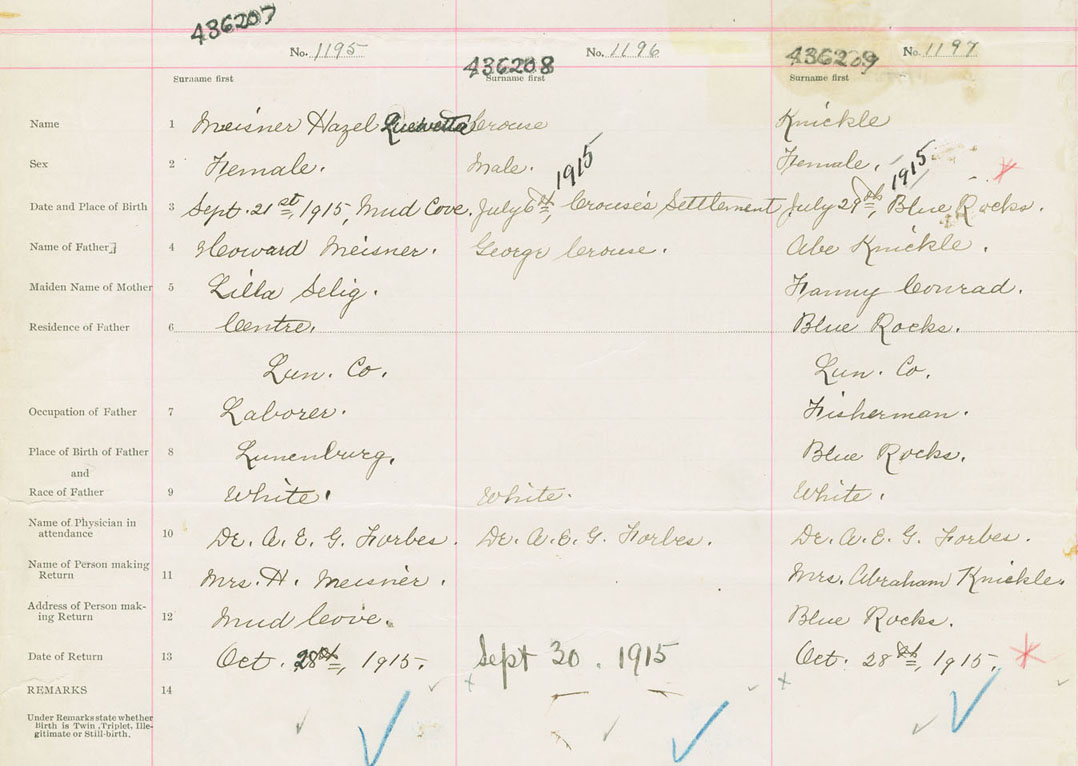 436207
No. 1195 No. 1196 No. 1197
436208 436209
Surname first Surname first Surname first
Name 1 Meisner Hazel Crouse Knickle
Sex 2 Female. Male. Female.
1915 1915
Date and Place of Birth 3 Sept. 21st, 1915, Mud Cove. July 6th, Crouse's Settlement July 29th, Blue Rocks.
Name of Father 4 Howard Meisner. George Crouse. Abe Knickle.
Maiden Name of Mother 5 Lilla Selig. Fanny Conrad.
Residence of Father 6 Centre, Blue Rocks.
Lun. Co. Lun. Co.
Occupation of Father 7 Laborer. Fisherman.
Place of Birth of Father 8 Lunenburg. Blue Rocks.
and
Race of Father 9 White. White. White.
Name of Physician in
attendance 10 Dr. A. E. G. Forbes. Dr. A. E. G. Forbes. Dr. A. E. G. Forbes.
Name of Person making
Return 11 Mrs. H. Meisner. Mrs. Abraham Knickle.
Address of Person mak-
ing Return 12 Mud Cove. Blue Rocks.
Date of Return 13 Oct. 28th, 1915. Sept 30. 1915 Oct. 28th, 1915.
REMARKS 14
Under Remarks state whether
Birth is Twin, Triplet, Ille-
gitimate or Still-birth.